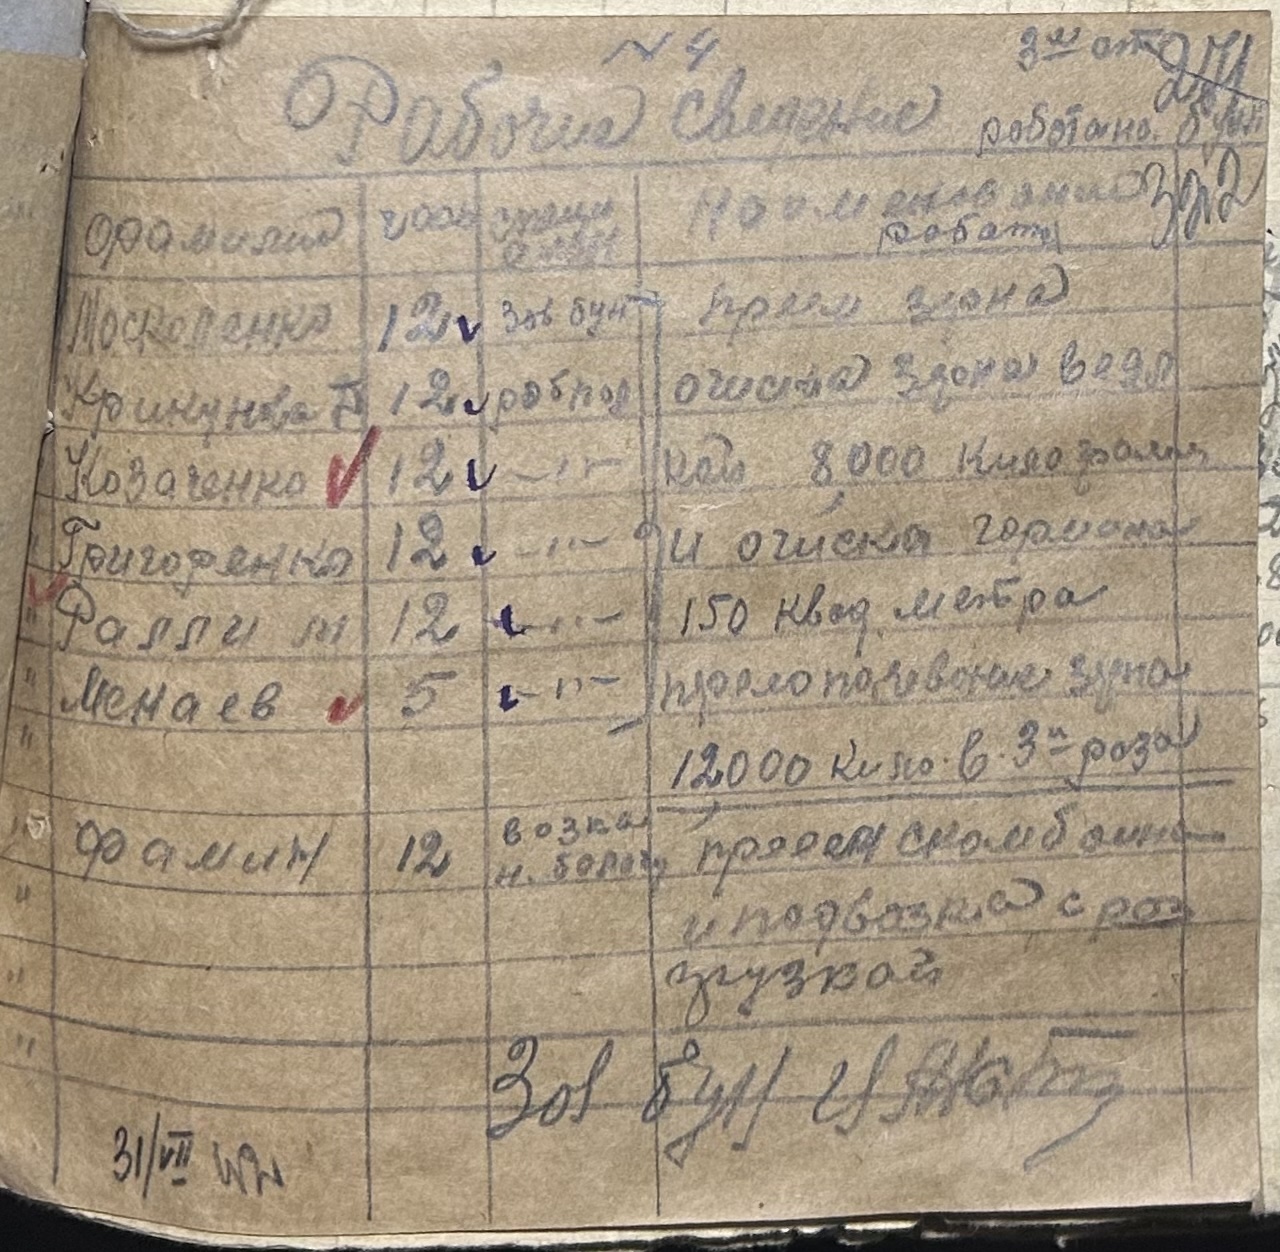 N 4
3й от 271
Рабочие сведение
работано. бунт
322
Фамилия часы специ Наоменование
работ
Москаленко 12 Зав бун прием зрона
Крикунова II 12 раб под очистка зрона ведя
Козаченко 12 -"- кой 8,000 Килограмм
Григоренко 12 -"- и очиска гормона
Раллит 12 -"- 150 квад. метра
Менаев 5 -"- прелопачевоние зрна
12000 кило. в. 3й раза
Фамин 12 возка
н. болоч прием скомбоина
и подвозка с раз
згрузкой
Зав бун
31/VII